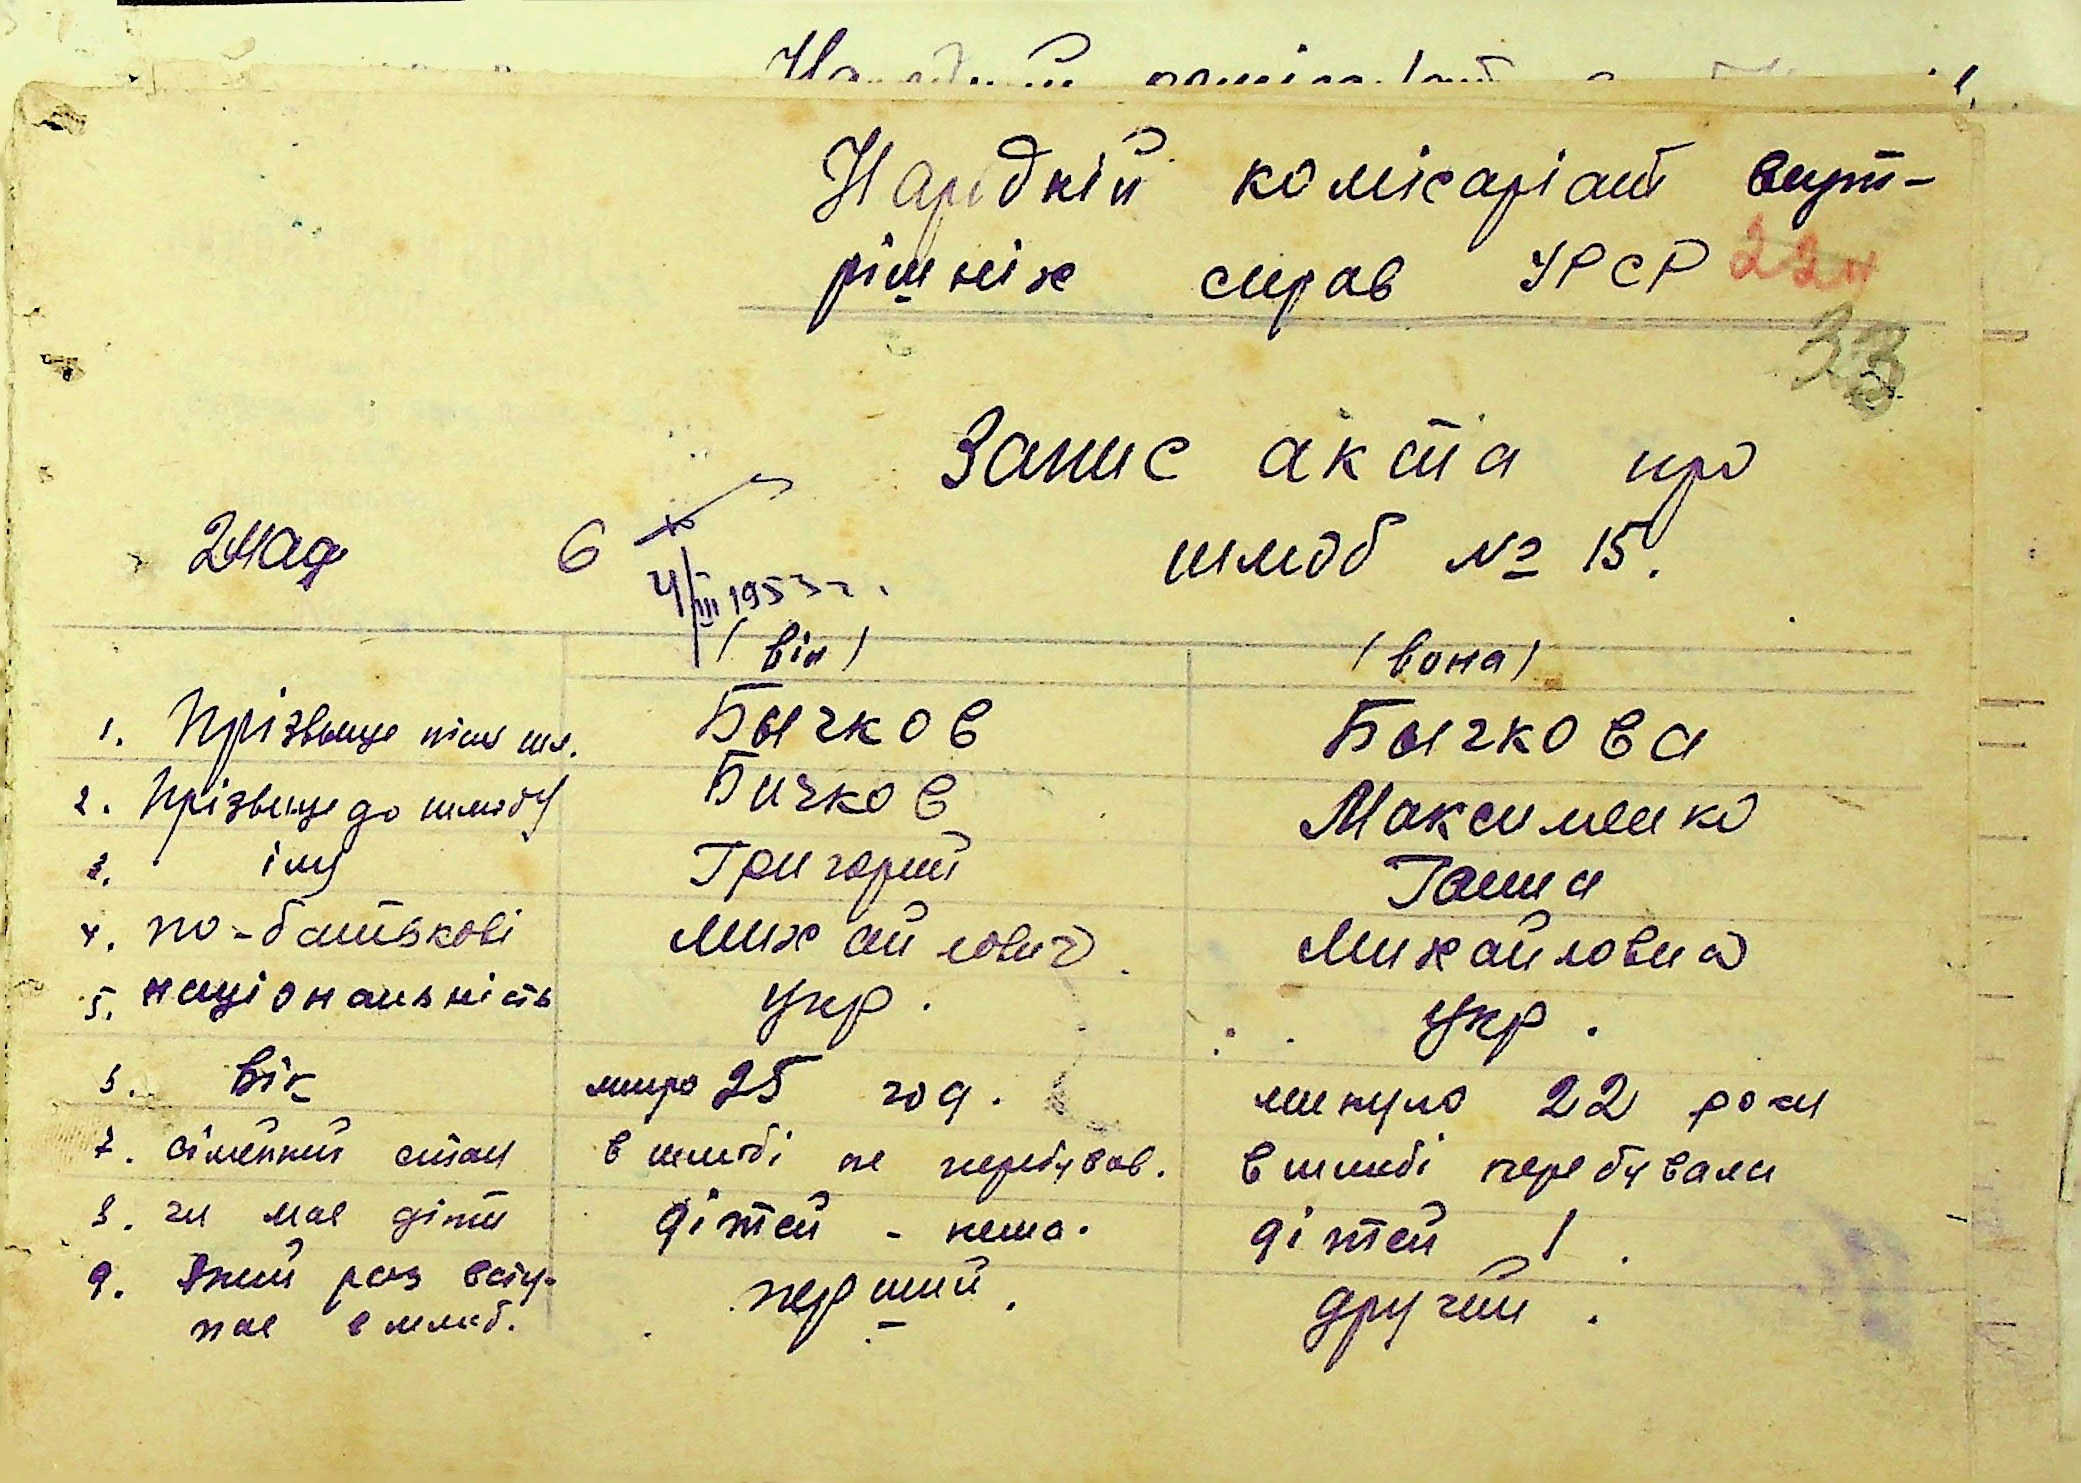 Народній комісаріат внут-
рішніх справ УРСР
33
Запис акта про
шлюб № 15.
6
4/III 1953 г.
/ він / / вона /
1. Прізвыще післ шл. Бычков Бычкова
2. Прізвыще до шлюбу Бичков Максименко
3. імя Григорий Ганна
4. по-батькові Михайлович Михайловна
5. національність укр. укр.
вік минуло 22 роки
7. сімейний стан в шлюбі не перебував. в шлюбі перебувала
8. чи має діти дітей - нема. дітей 1.
9. Який раз всту- перший. другий.
пає в шлюб.